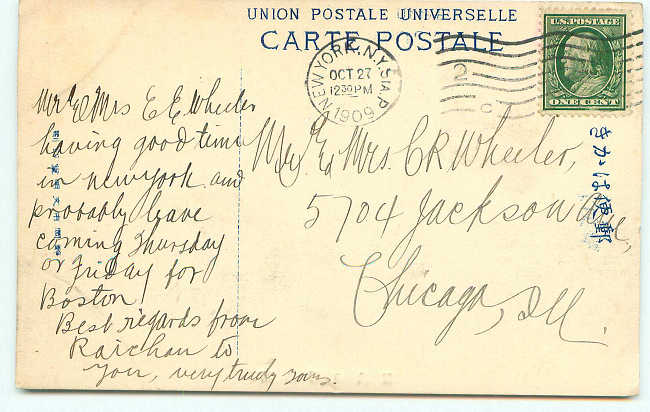 UNION POSTALE UNIVERSELLE
CARTE POSTALE
NEW YORK, N.Y. STA. P
OCT 27
12 30 PM
1909
2
C
U.S. POSTAGE
ONE CENT
Mr & Mrs E E Wheeler
having good time
in new york and
provably leave
coming Thursday
or Friday for
Boston!
Best regards from
Raichan to
you, very truly yours.
Mr & Mrs. C R Wheeler,
5704 Jackson Ave,
Chicago, Ill.
きかは便郵